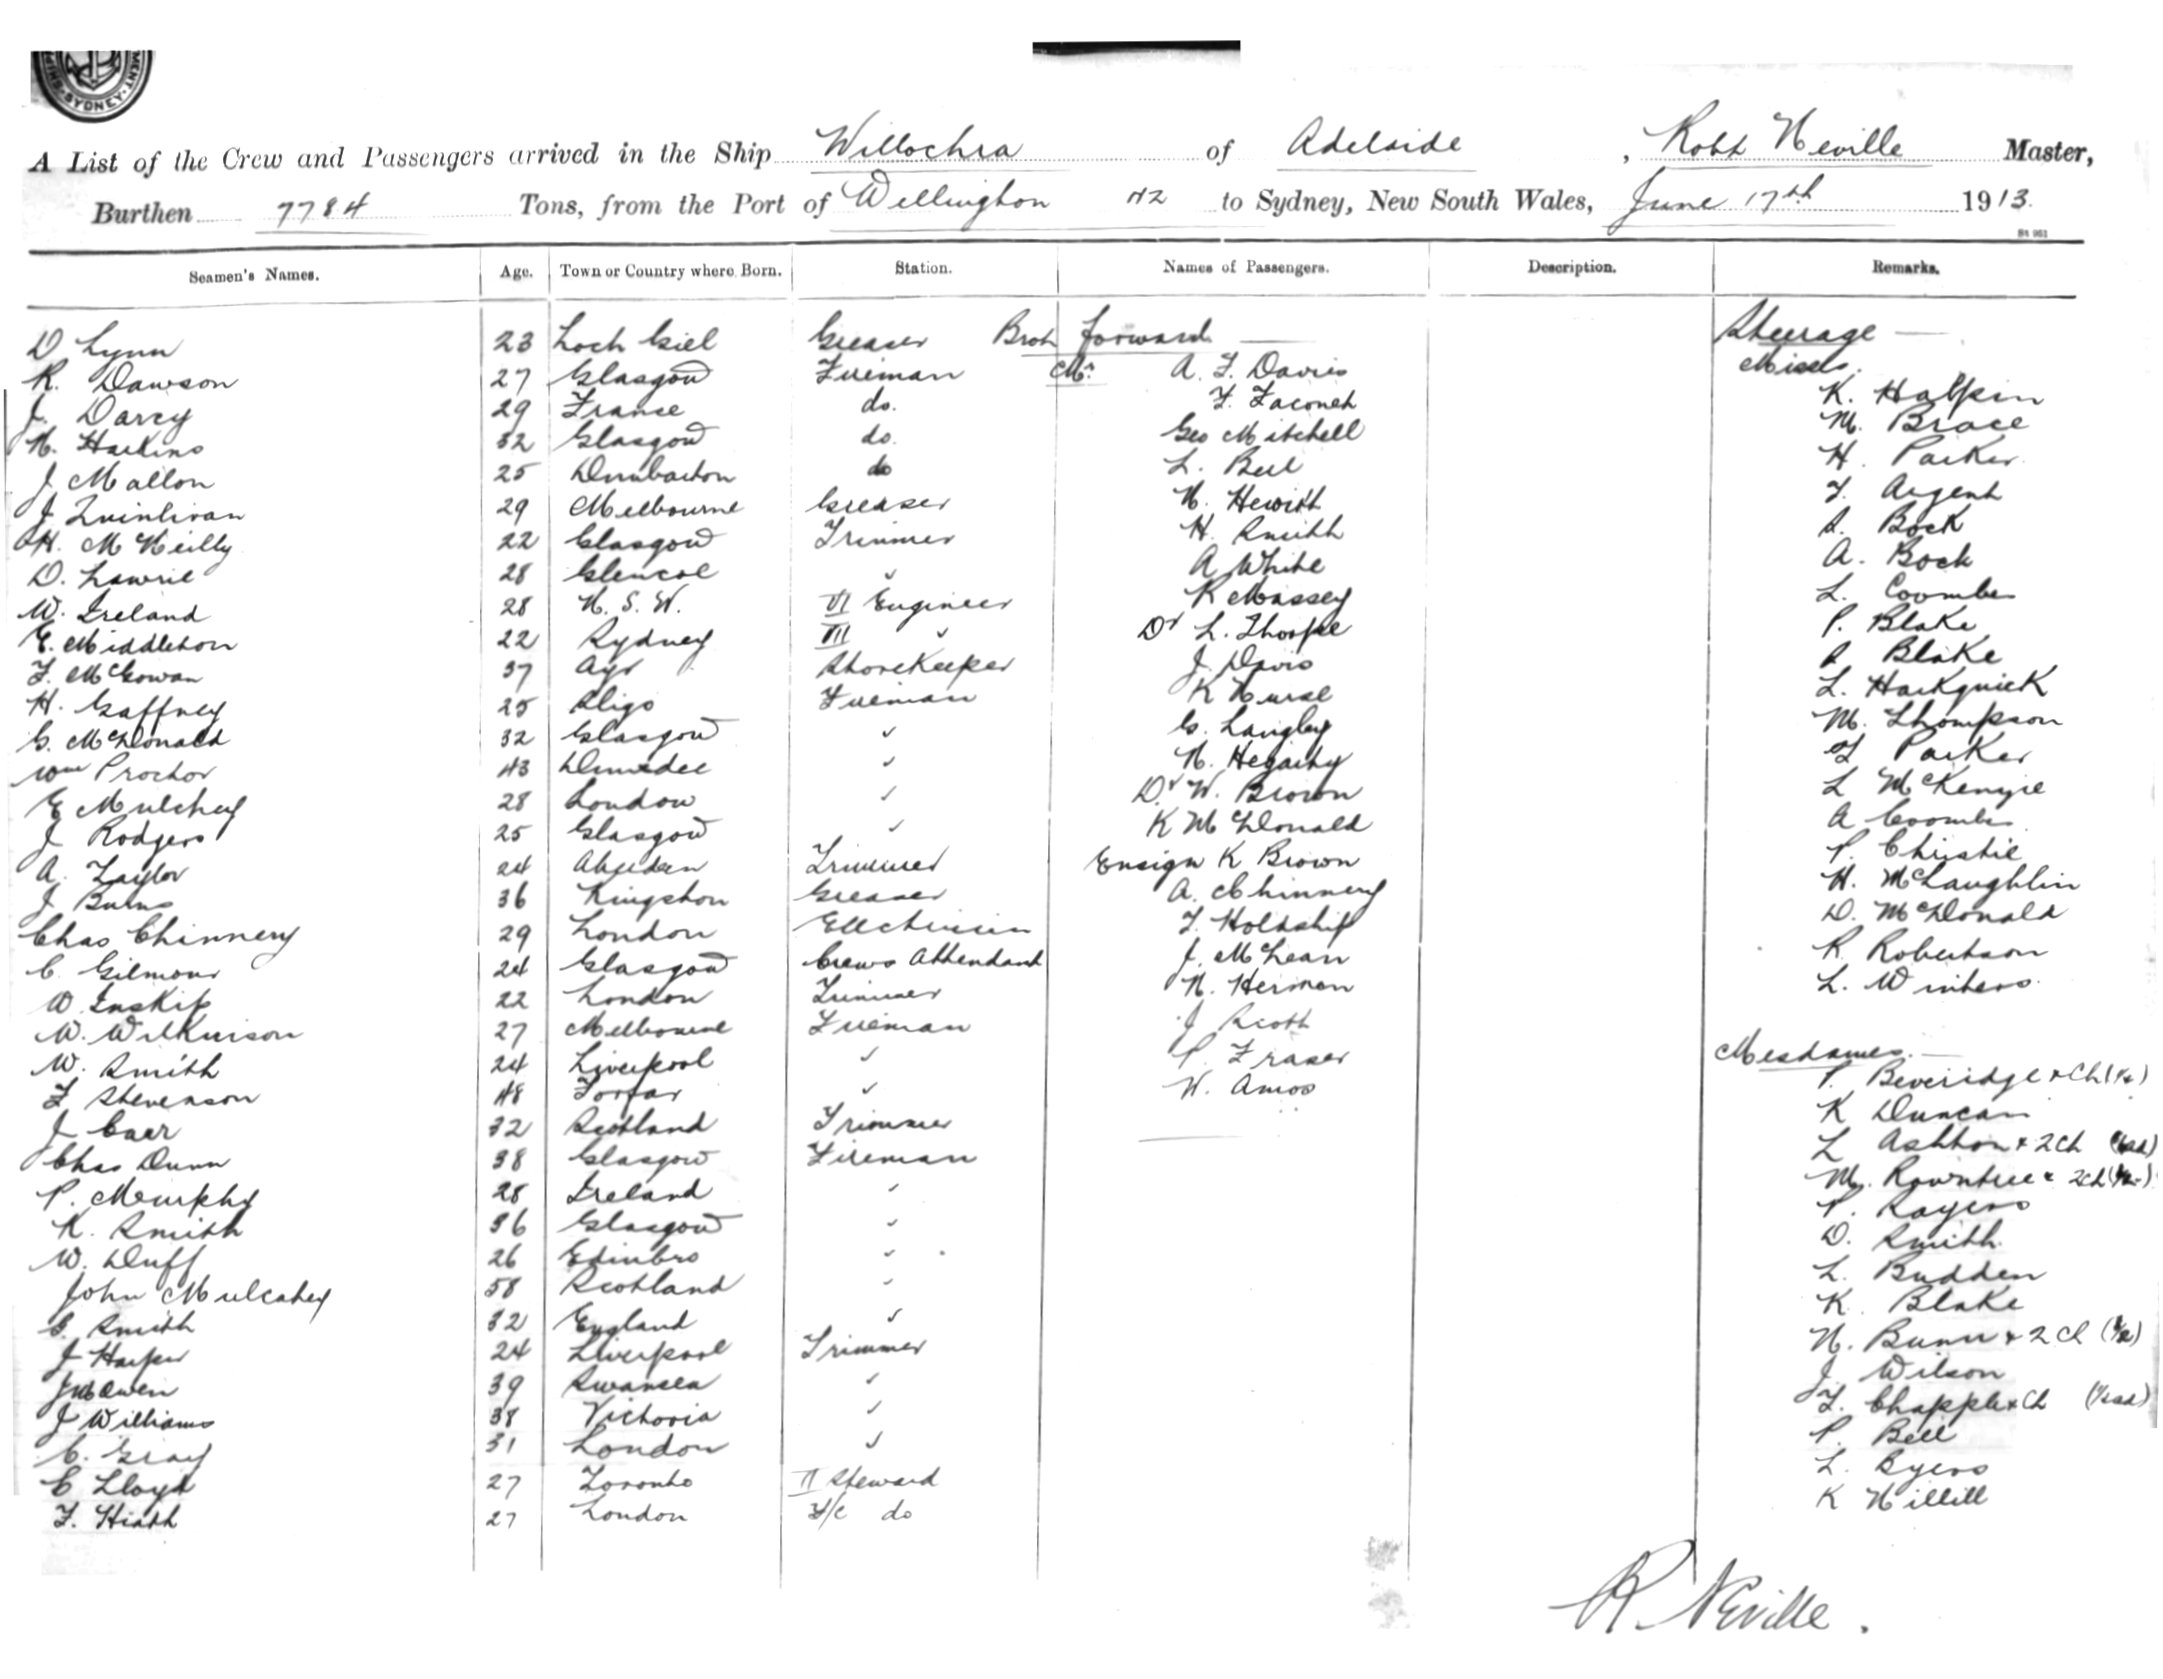 SYDNEY
A List of the Crew and Passengers arrived in the Ship Willochra of Adelaide, Robt Neville Master,
Burthen 7784 Tons, from the Port of Wellington NZ to Sydney, New South Wales, June 17th 1913.
Seamen's Names. Age. Town or Country where Born. Station. Names of Passengers. Description. Remarks.
D Lynn 23 Loch Giel Greaser Brot forward Steerage
R. Dawson 27 Glasgow Fireman Mr. A. F. Davies Misses.
J. Darcy 29 France do. F. K. Halpin
N. Harkins 32 Glasgow do. Geo Mitchell M. Brace
J Mallon 25 Dumbarton do L. Bell H. Parker
J Quinlivan 29 Melbourne Greaser N. Hewitt F. Argent
H. McNeilly 22 Glasgow Trimmer H. Smith S. Bock
D. Lawrie 28 Glencoe " A White A. Bock
W. Ireland 28 N. S. W. VI Engineer R Massey L. Coombes
E. Middleton 22 Sydney VII " Dr L. Thorpe P. Blake
F. McGowan 37 Ayr Storekeeper J Davis S Blake
H. Gaffney 25 Sligo Fireman K Nurse L. Hackquick
G. McDonald 32 Glasgow " G. Langley M. Thompson
Wm Proctor 43 Dundee " N. Hegarty F Parker
E Mulchey 28 London " Dr W. Brown L McKenzie
J Rodgers 25 Glasgow " K McDonald A Coombes
A. Taylor 24 Aberdeen Trimmer Ensign K Brown P. Christie
J Burns 36 Kingston Greaser A. Chinnery H. McLaughlin
Chas Chinnery 29 London Electrician F. Holdship D. McDonald
C. Gilmour 24 Glasgow Crews Attendant J. McLean R. Robertson
W Inskip 22 London Trimmer N. Herman L. Winters
W. Wilkinson 27 Melbourne Fireman J Scott
W. Smith 24 Liverpool " P. Fraser Mesdames.
F Stevenson 48 Forfar " W. Amos P. Beveridge & Ch
J Carr 32 Scotland Trimmer K Duncan
Chas Dunn 38 Glasgow Fireman L Ashton & 2 Ch
P. Murphy 28 Ireland " M. Rowntree & 2 Ch
K. Smith 36 Glasgow " P. Rogers
W. Duff 26 Edinbro " D. Smith
John Mulcahey 58 Scotland " L. Budden
G. Smith 32 England " K. Blake
J Harper 24 Liverpool Trimmer N. Bunn & 2 Ch
J McOwen 39 Swansea " J Wilson
J Williams 38 Victoria " F. Chapple & Ch
C. Gray 31 London " P. Bell
C Lloyd 27 Toronto II Steward L. Byers
F. Heath 27 London F/C do K
R Neville.